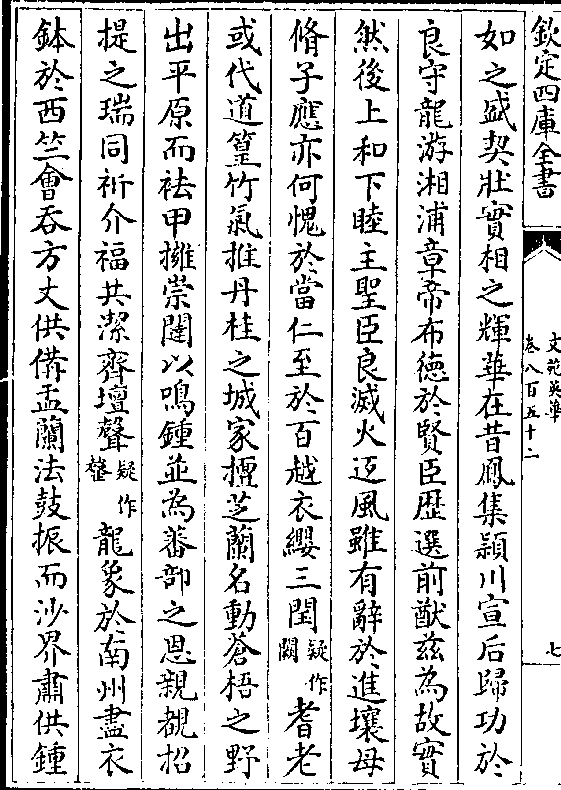 欽定四庫全書
文苑英華
卷八百五十二
七
如之盛契壯實相之輝華在昔鳳集潁川宣后歸功於
良守龍游湘浦章帝布德於賢臣歷選前猷兹為故實
然後上和下睦主聖臣良滅火返風雖有辭於進壤母
脩子應亦何愧於當仁至於百越衣纓三閏疑作闕耆老
或代道篁竹氣推丹桂之城家擅芝蘭名動蒼梧之野
出平原而袪甲擁崇闥以鳴鍾並為蕃部之恩親覩招
提之瑞同祈介福共潔齊壇聲疑作罄龍象於南州盡衣
鉢於西竺會吞方丈供備盂蘭法鼓振而沙界肅供鍾